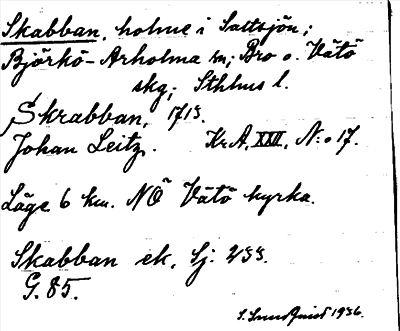 Skabban, holme i Saltsjön;
Björkö-Arholma sn; Bro o. Vätö
skg; Sthlms l.
Skrabban, 1713.
Johan Leitz. Kr.A, XXII, N:o 17.
Läge 6 km. NÖ Vätö kyrka.
Skabban ek. Sj: 233.
G. 85.
1936.